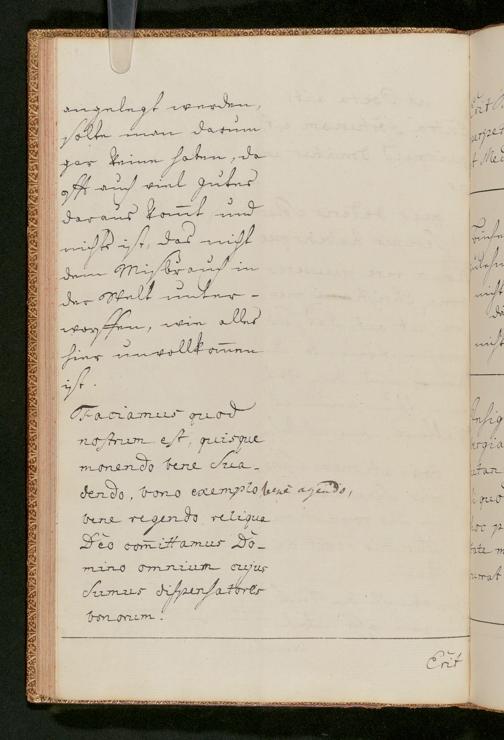 angelegt werden,
solte man darum
gar keine haben, da
offt auch viel gutes
daraus kom̄t und
nichts ist, das nicht
dem Misbrauch in
der Welt unter-
worffen, wie alles
hier unvollkom̄en
ist.
Faciamus quod
nostrum est, quisque
monendo bene Sua-
dendo, bono exemplo benè agendo,
bene regendo reliqua
Deo com̄ittamus Do-
mino omnium cujus
Sumus dispensatores
bonorum.
Erit